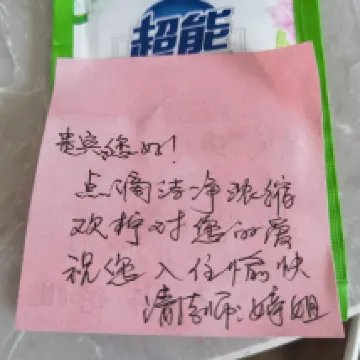 超能
贵宾您好!
点滴洁净浓缩
欢柠对您的爱
祝您入住愉快
清洁师:婷姐